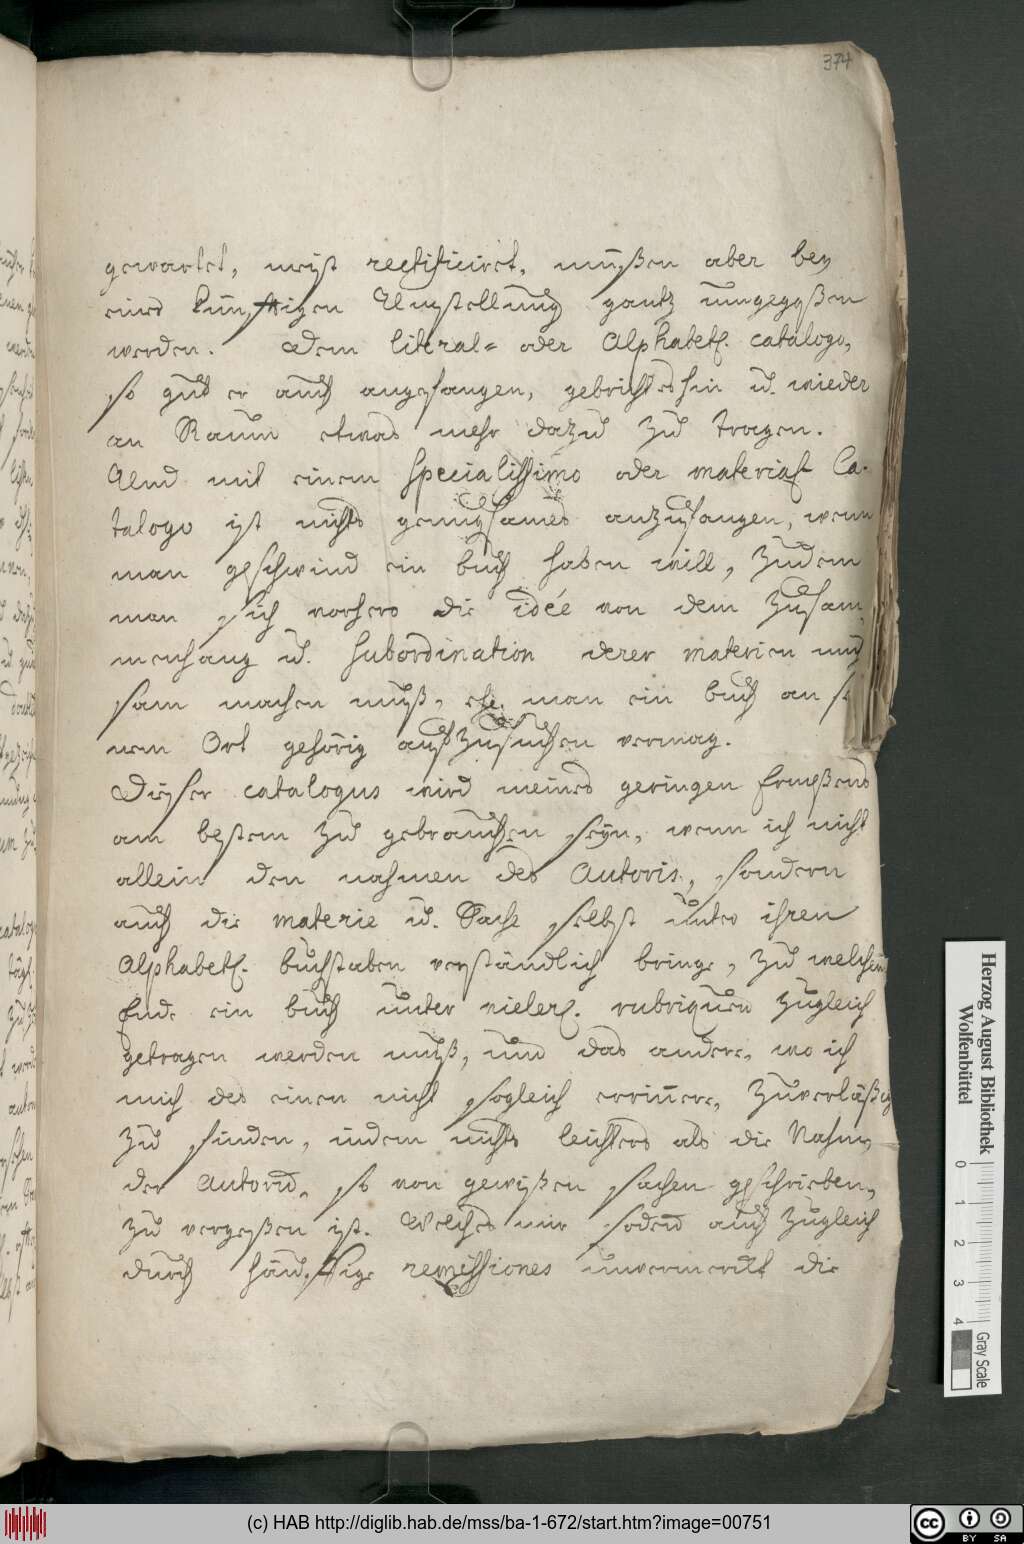 374
gewartet, meist rectificiret, müßen aber bey
einer künfftigen Umstellung gantz umgegoßen
werden. Dem literal= oder Alphabet. catalogo,
so gut er auch angefangen, gebrichts hin u. wieder
an Raum etwas mehr dazu zu tragen.
Und mit einem specialissimo oder material Ca-
talogo ist nichts genugsames anzufangen, wenn
man geschwind ein buch haben will, zudem
man sich vorhero die idée von dem Zusam
menhang u. subordination derer materien
sam machen muß, ehe man ein buch an
nem Ort gehörig außzusuchen vermag.
Dieser catalogus wird meines geringen Ermeßens
am bestem zu gebrauchen seyn, wenn ich nicht
allein den nahmen des Autoris, sondern
auch die materie u. Sache selbst unter ihren
Alphabet. buchstaben verständlich bringe, zu welchem
Ende ein buch unter vieler. rubriquen zugleich
getragen werden muß, und das andere, wo ich
mich des einen nicht sogleich erinnere, zuverläßig
zu finden, indem nichts leichters als die Nahmen
der Autorum, so von gewißen sachen geschrieben,
zu vergeßen ist. Welches mir sodenn auch zugleich
durch häuffige remissiones unvermerckt die
Herzog August Bibliothek
Wolfenbüttel
0 1 2 3 4
Gray Scale
(c) HAB http://diglib.hab.de/mss/ba-1-672/start.htm?image=00751
cc BY SA